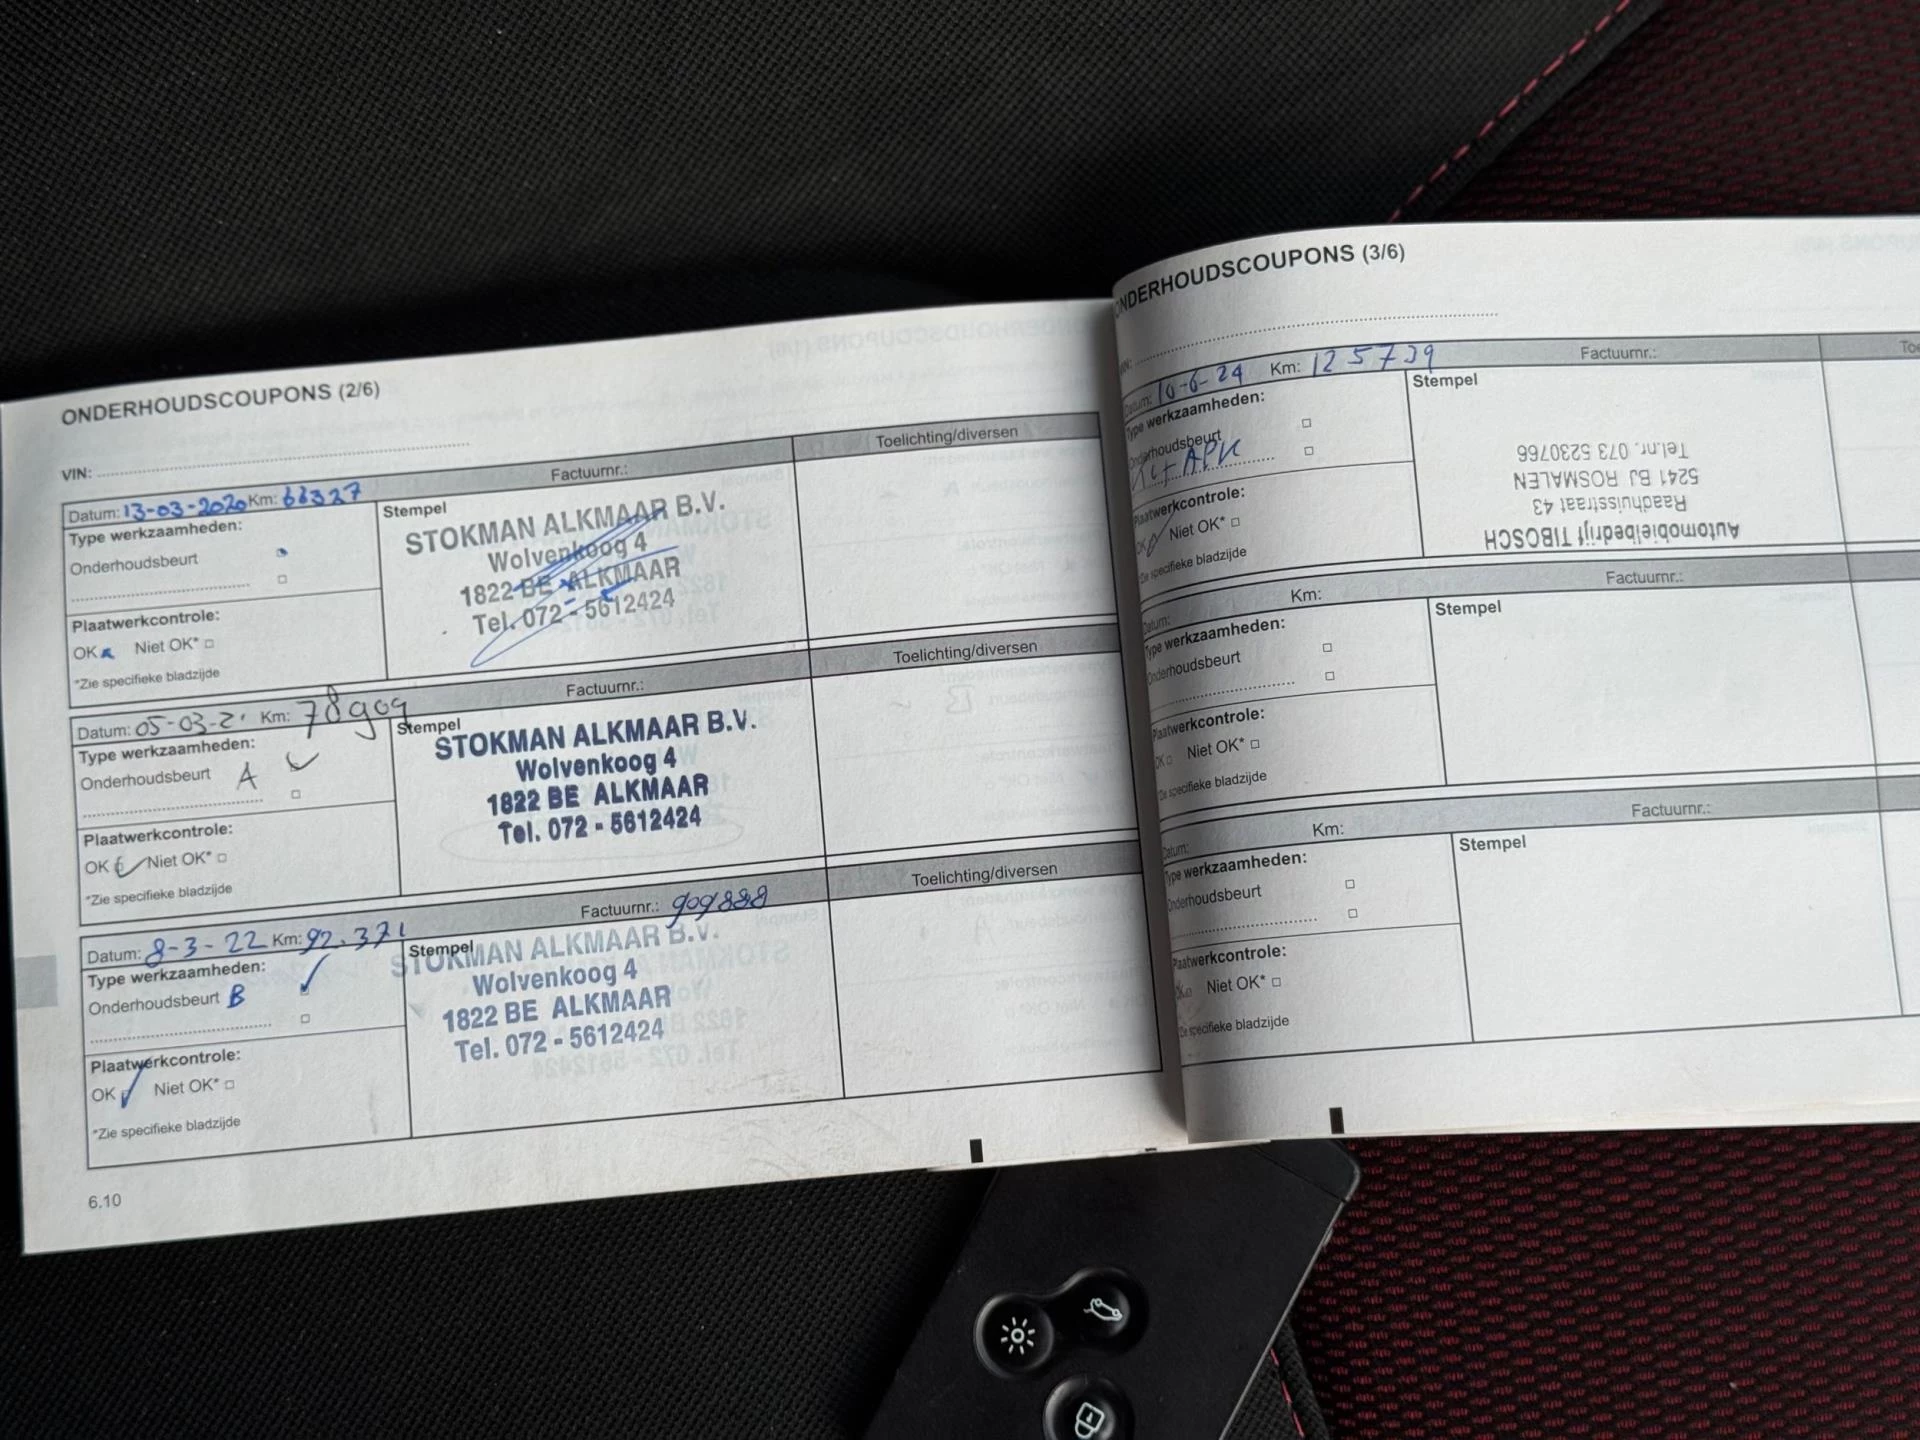 ONDERHOUDSCOUPONS (2/6)
VIN:
Datum: 13-03-2020 Km: 66327 Factuurnr.: Toelichting/diversen
Type werkzaamheden:
Onderhoudsbeurt
Plaatwerkcontrole:
OK Niet OK*
*Zie specifieke bladzijde
Stempel
STOKMAN ALKMAAR B.V.
Wolvenkoog 4
1822 BE ALKMAAR
Tel. 072 - 5612424
Datum: 05-03-21 Km: 78909 Factuurnr.: Toelichting/diversen
Type werkzaamheden:
Onderhoudsbeurt A
Plaatwerkcontrole:
OK Niet OK*
*Zie specifieke bladzijde
Stempel
STOKMAN ALKMAAR B.V.
Wolvenkoog 4
1822 BE ALKMAAR
Tel. 072 - 5612424
Datum: 8-3-22 Km: 92.371 Factuurnr.: 909888 Toelichting/diversen
Type werkzaamheden:
Onderhoudsbeurt B
Plaatwerkcontrole:
OK Niet OK*
*Zie specifieke bladzijde
Stempel
STOKMAN ALKMAAR B.V.
STOKMAN ALKMAAR B.V.
Wolvenkoog 4
1822 BE ALKMAAR
Tel. 072 - 5612424
6.10
ONDERHOUDSCOUPONS (3/6)
VIN:
Datum: 10-6-24 Km: 125739 Factuurnr.:
Type werkzaamheden:
Onderhoudsbeurt
+ APK
Plaatwerkcontrole:
OK Niet OK*
*Zie specifieke bladzijde
Stempel
Automobielbedrijf TIBOSCH
Raadhuisstraat 43
5241 BJ ROSMALEN
Tel.nr. 073 5230766
Datum: Km: Factuurnr.:
Type werkzaamheden:
Onderhoudsbeurt
Plaatwerkcontrole:
OK Niet OK*
*Zie specifieke bladzijde
Stempel
Datum: Km: Factuurnr.:
Type werkzaamheden:
Onderhoudsbeurt
Plaatwerkcontrole:
OK Niet OK*
*Zie specifieke bladzijde
Stempel